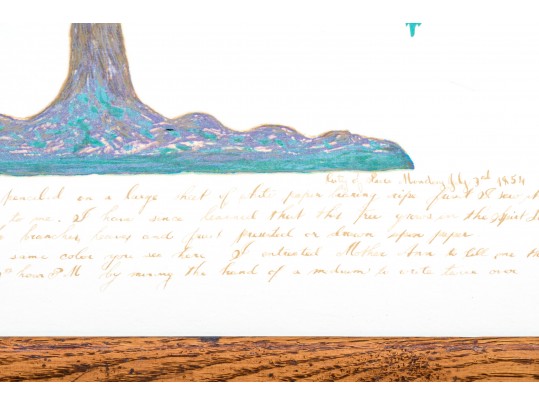 City of Peace Monday July 3rd 1854
penciled on a large sheet of white paper bearing ripe fruit. I saw it
to me. I have since learned that this tree grows in the Spirit
branches, leaves and fruit penciled or drawn upon paper
same color you see here. I entreated Mother Ann to tell me the
hour P.M. by moving the hand of a medium to write twice over